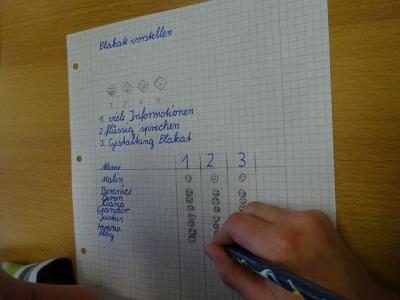 Plakate vorstellen
1. viele Informationen
2. flüssig sprechen
3. Gestaltung Plakat
Name 1 2 3
Malin
Berenice
Leander
Henna